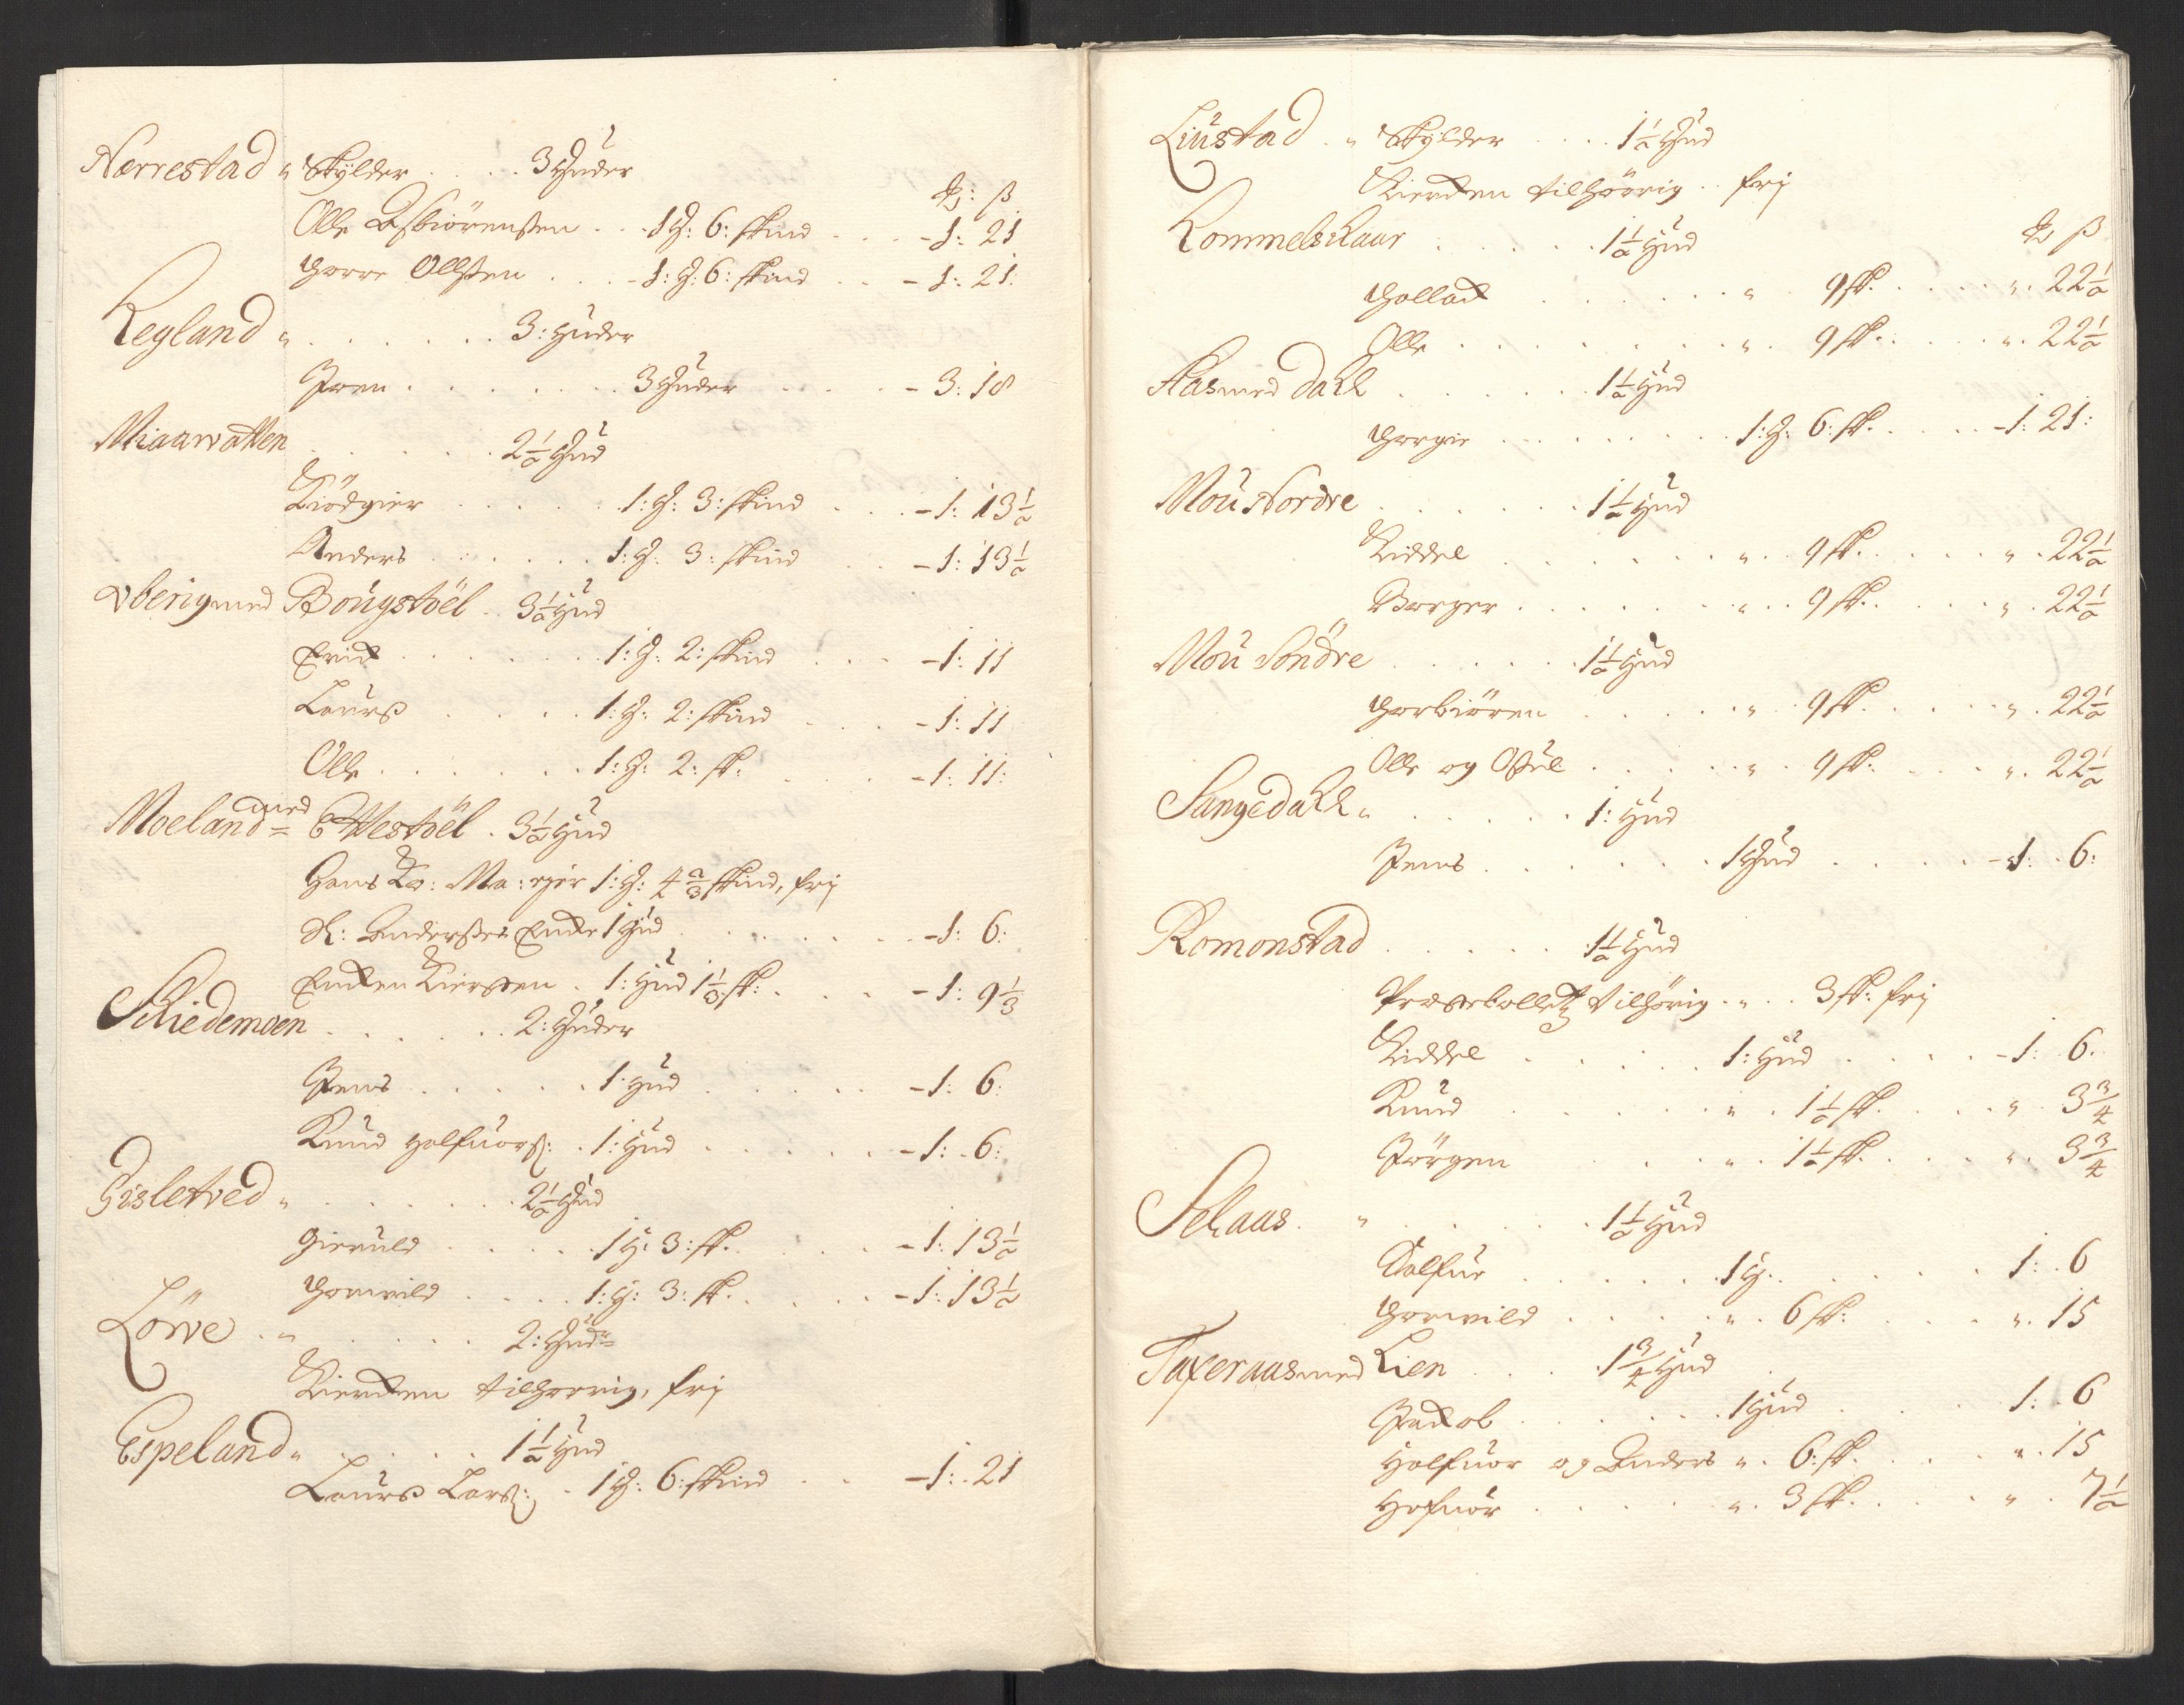 Nærrestad „ Skylder . . . . 3 Huder
Rd: ß
Olle Asbiörensen . . 1 H: 6: skind . . . - 1: 21
Torre Ollsen . . . - 1: H: 6: skind . . - 1: 21:
Regland „ . . . . . . . 3: Huder
Joen . . . . . . . 3 Huder . . . . . - 3: 18
Miaarvatten . . . . . . 2 1/2 Hud
Siödgier . . . . . 1: H: 3: skind . . . - 1: 13 1/2
Anders . . . . . . 1: H. 3: skind . . - 1: 13 1/2
Øberig med Bougstöel . . 3 1/2 Hud
Erich . . . . . . . 1: H: 2: skind . . . - 1: 11
Laurs . . . . 1: H: 2: skind . . . - 1: 11
Olle . . . . . . 1: H: 2: sk: . . . - 1: 11:
Moeland med EWestöel . 3 1/2 Hud
Hans Ko: Ma: ejer 1: H: 4 2/3 skind, frj
Sl: Andersses Encke 1 Hud . . . . . . . - 1: 6:
Encken Kiersten . 1: Hud 1 1/3 sk: . . . . - 1: 9 1/3
Skiedemoen . . . . . . 2: Huder
Jens . . . . . 1 Hud . . . . . . - 1: 6:
Knud Halfuors: . 1: Hud . . . . . . - 1: 6:
Gisletved „ . . . . . . 2 1/2 Hud
Gieruld . . . . . 1 H: 3: sk. . . . . - 1: 13 1/2
Torvild . . . . 1: H: 3: sk. . . . . - 1: 13 1/2
Lövve . „ . . . . . 2: Hudr
Kiercken tilhorrig, frj
Espeland „ . . . . . 1 1/2 Hud
Laurs Lars: . 1 H: 6: skind . . - 1: 21
Liustad . „ Skylder . . . . 1 1/2 Hud
Kiercken tilhörrig . . frj
Rommelskaar . . . . . . 1 1/2 Hud
Rd ß
Tollach . . . . . . . „ 9 sk. . . . . „. 22 1/2
Olle . . . . . . . . „. 9 sk. . . . . „. 22 1/2
Aas med Dahl . . . . . . 1 1/2 Hud
Torgie . . . . . . . . 1: H: 6: sk. . . . . - 1: 21:
Mou Nordre . . . . . . 1 1/2 Hud
Kiddel . . . . . . . „ . . 9 sk. . . . . „ . 22 1/2
Borger . . . . . . . „ . . 9 sk. . . . . „ . 22 1/2
Mou Söndre . . . . . . 1 1/2 Hud
Torbiören . . . . . „ . 9 sk. . . . . „ . 22 1/2
Olle og Osul . . . . . „ . 9 sk. . . . . „. 22 1/2
Sangedahl „ . . . . . 1: Hud
Jens . . . . . . 1 Hud . . . . . - 1: . 6:
Romonstad . . . . . 1 1/2 Hud
Præstebollet tilhörig . „ . . 3 sk: frj
Kiddel . . . . 1: Hud . . . . - 1: 6.
Knud . . . . . . „ . 1 1/2 sk. . . . „ 3 3/4
Jörgen . . . „ . 1 1/2 sk. . . . „. 3 3/4
Selaas . „ . . . . . . 1 1/2 Hud
Dalfur . . . . . . 1 H. . . . . . 1: . 6
Torvild . . . . . „ . 6 sk: . . . „. 15
Taxeraas med Lien . . . 1 3/4 Hud
Jackob . . . . . . 1 Hud . . . . 1: . 6
Halfuor og Anders „ . 6: sk. . . . „. 15
Hafuor . . . . . „ . 3 sk. . . . „ . 7 1/2